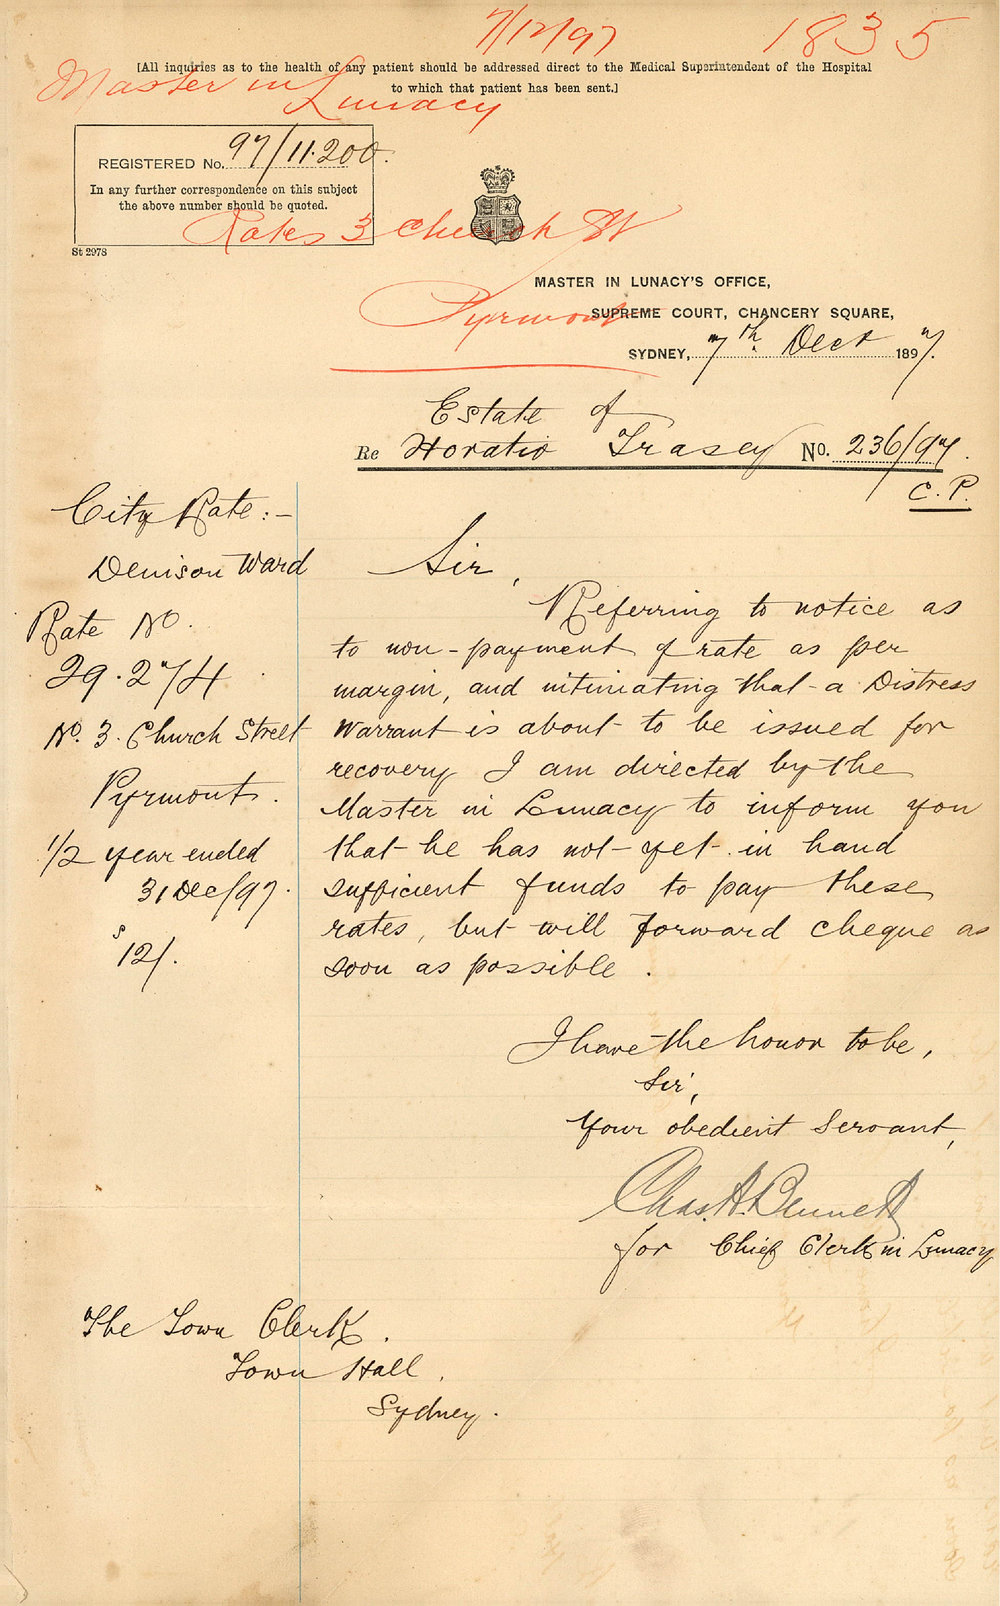 7/12/97 1835
[All inquiries as to the health of any patient should be addressed direct to the Medical Superintendent of the Hospital
to which that patient has been sent.]
Master in
Lunacy
REGISTERED No. 97/11.200.
In any further correspondence on this subject
the above number should be quoted.
Rates 3 Church St
St 2978
MASTER IN LUNACY'S OFFICE,
Pyrmont
SUPREME COURT, CHANCERY SQUARE,
SYDNEY, 7th Dect 1897.
Estate of
Re Horatio Trasey No. 236/97.
C. P.
City Rate :-
Denison Ward
Rate No.
29.274
No. 3. Church Street
Pyrmont.
1/2 year ended
31 Dec/97.
s
12/.
Sir,
Referring to notice as
to non-payment of rate as per
margin, and intimating that a Distress
Warrant is about to be issued for
recovery I am directed by the
Master in Lunacy to inform you
that he has not yet in hand
sufficient funds to pay these
rates, but will forward cheque as
soon as possible.
I have the honor to be,
Sir,
Your obedient Servant,
Chas. A. Bennett
for Chief Clerk in Lunacy
The Town Clerk.
Town Hall.
Sydney.